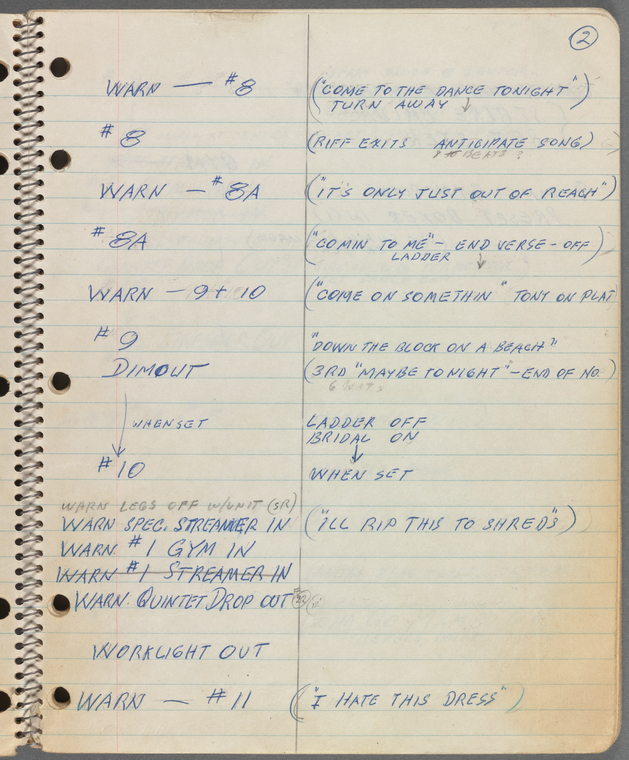 2
WARN — #8 ("COME TO THE DANCE TONIGHT")
TURN AWAY ↓
#8 (RIFF EXITS ANTICIPATE SONG)
BEATS?
WARN — #8A ("IT'S ONLY JUST OUT OF REACH")
#8A ("COMIN TO ME" - END VERSE - OFF)
LADDER ↓
WARN — 9 + 10 ("COME ON SOMETHIN" TONY ON PLAT)
#9 "DOWN THE BLOCK ON A BEACH"
DIMOUT (3RD "MAYBE TONIGHT" - END OF NO.)
6 beats
WHEN SET LADDER OFF
BRIDAL ON
↓
#10 WHEN SET
WARN LEGS OFF W/UNIT (SR)
WARN SPEC. STREAMER IN ("ILL RIP THIS TO SHREDS")
WARN #1 GYM IN
WARN #1 STREAMER IN
WARN QUINTET DROP OUT
WORKLIGHT OUT
WARN — #11 ("I HATE THIS DRESS")